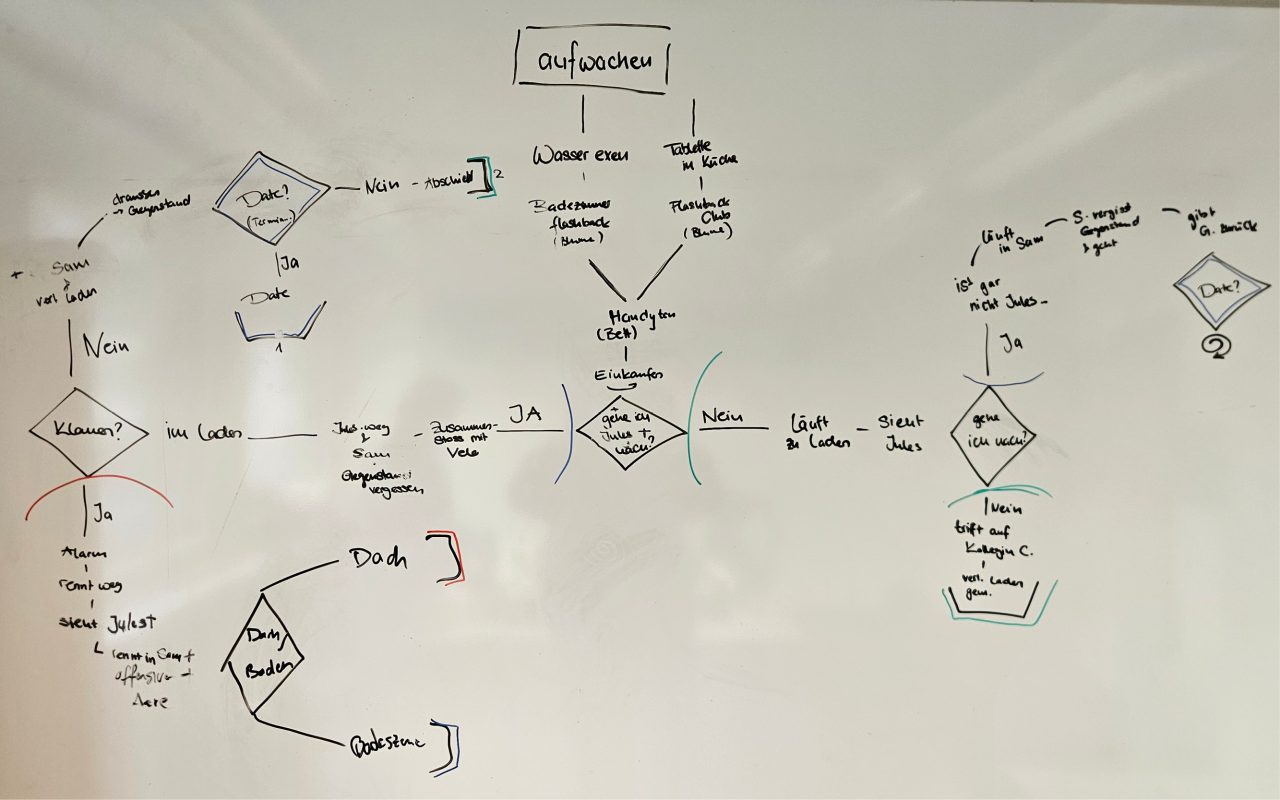 aufwachen
Wasser exen
Badezimmer
flashback
(Blume)
Tablette
in Küche
Flashback
Club
(Blume)
(Bett)
Einkaufen
gehe ich
Jules +
nach?
JA
Zusammen-
stoss mit
Velo
Jules weg
Sam
Gegenstand
vergessen
im Laden
Klauen?
Nein
Sam
verl. Laden
draussen
→ Gegenstand
Date?
(Termin)
Nein - Abschied
2
Ja
Date
1
Ja
Alarm
rennt weg
sieht Jules+
rennt in Sam +
offensiv
Dach/
Boden
Dach
Badeszene
Nein
Läuft
zu Laden
Sieht
Jules
gehe
ich nach?
Ja
ist gar
nicht Jules
läuft
in Sam
S. vergisst
Gegenstand
geht
gibt
G. zurück
Date?
2
Nein
trift auf
Kollegin C.
verl. Laden
gem.